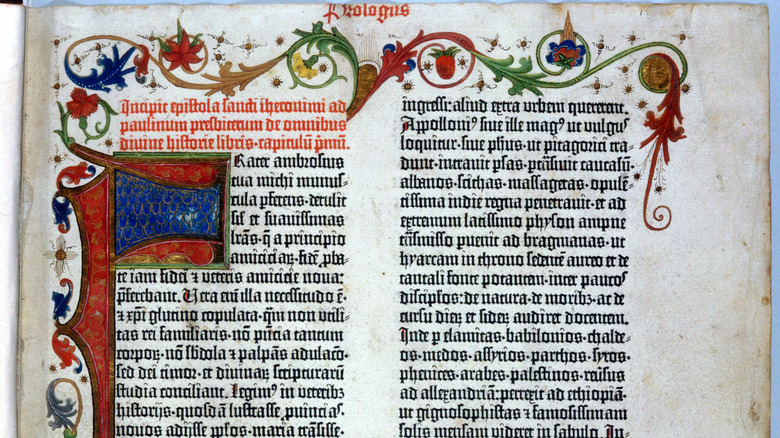 Prologus
Incipit epistola sancti iheronimi ad
paulinum presbiterum de omnibus
diuine historie libris·capitulū pmū.
Frater ambrosius
tua michi munus-
cula ꝑferens·detulit
sil' et suauissimas
lrās·q̄ a principio
amiciciaꝝ·fidē ꝓba-
te iam fidei ⁊ veteris amicicie noua:
ꝓferebant. Vera eni illa necessitudo ē·
⁊ xp̄i glutino copulata·qm̄ non vtili-
tas rei familiaris·nō pn̄cia tantum
corpoꝝ·nō sb̄dola ⁊ palpās adulacō·
sed dei timor·et diuinaꝝ scripturarum
studia conciliant. Legimꝰ in veteribꝫ
historijs·quosdā lustrasse ꝓuincias·
nouos adijsse ꝓplos·maria trāsisse·
ingressi:aliud extra vrbem quererent.
Appolloniꝰ siue ille magꝰ vt vulgꝰ
loquitur·siue phūs·vt pitagorici tra-
dunt·intrauit ꝑsas·ꝑtrāsiuit caucasū·
albanos·scithas·massagetas·opulē-
tissima indie regna penetrauit·et ad
extremum latissimo physon ampne
trāsmisso ꝑuenit ad bragmanas·vt
hyarcam in throno sedentē aureo et de
tantali fonte potantem·inter paucos
discipl'os·de natura·de moribꝫ·ac de
cursu dieꝝ et sideꝝ audiret docentem.
Inde ꝑ elamitas·babilonios·chalde-
os·medos·assyrios·parthos·syros·
phenices·arabes·palestinos·reūsus
ad allexandriā:ꝑrexit ad ethiopiā·
vt gignosophistas ⁊ famosissimam
solis mensam videret in sabulo. In-